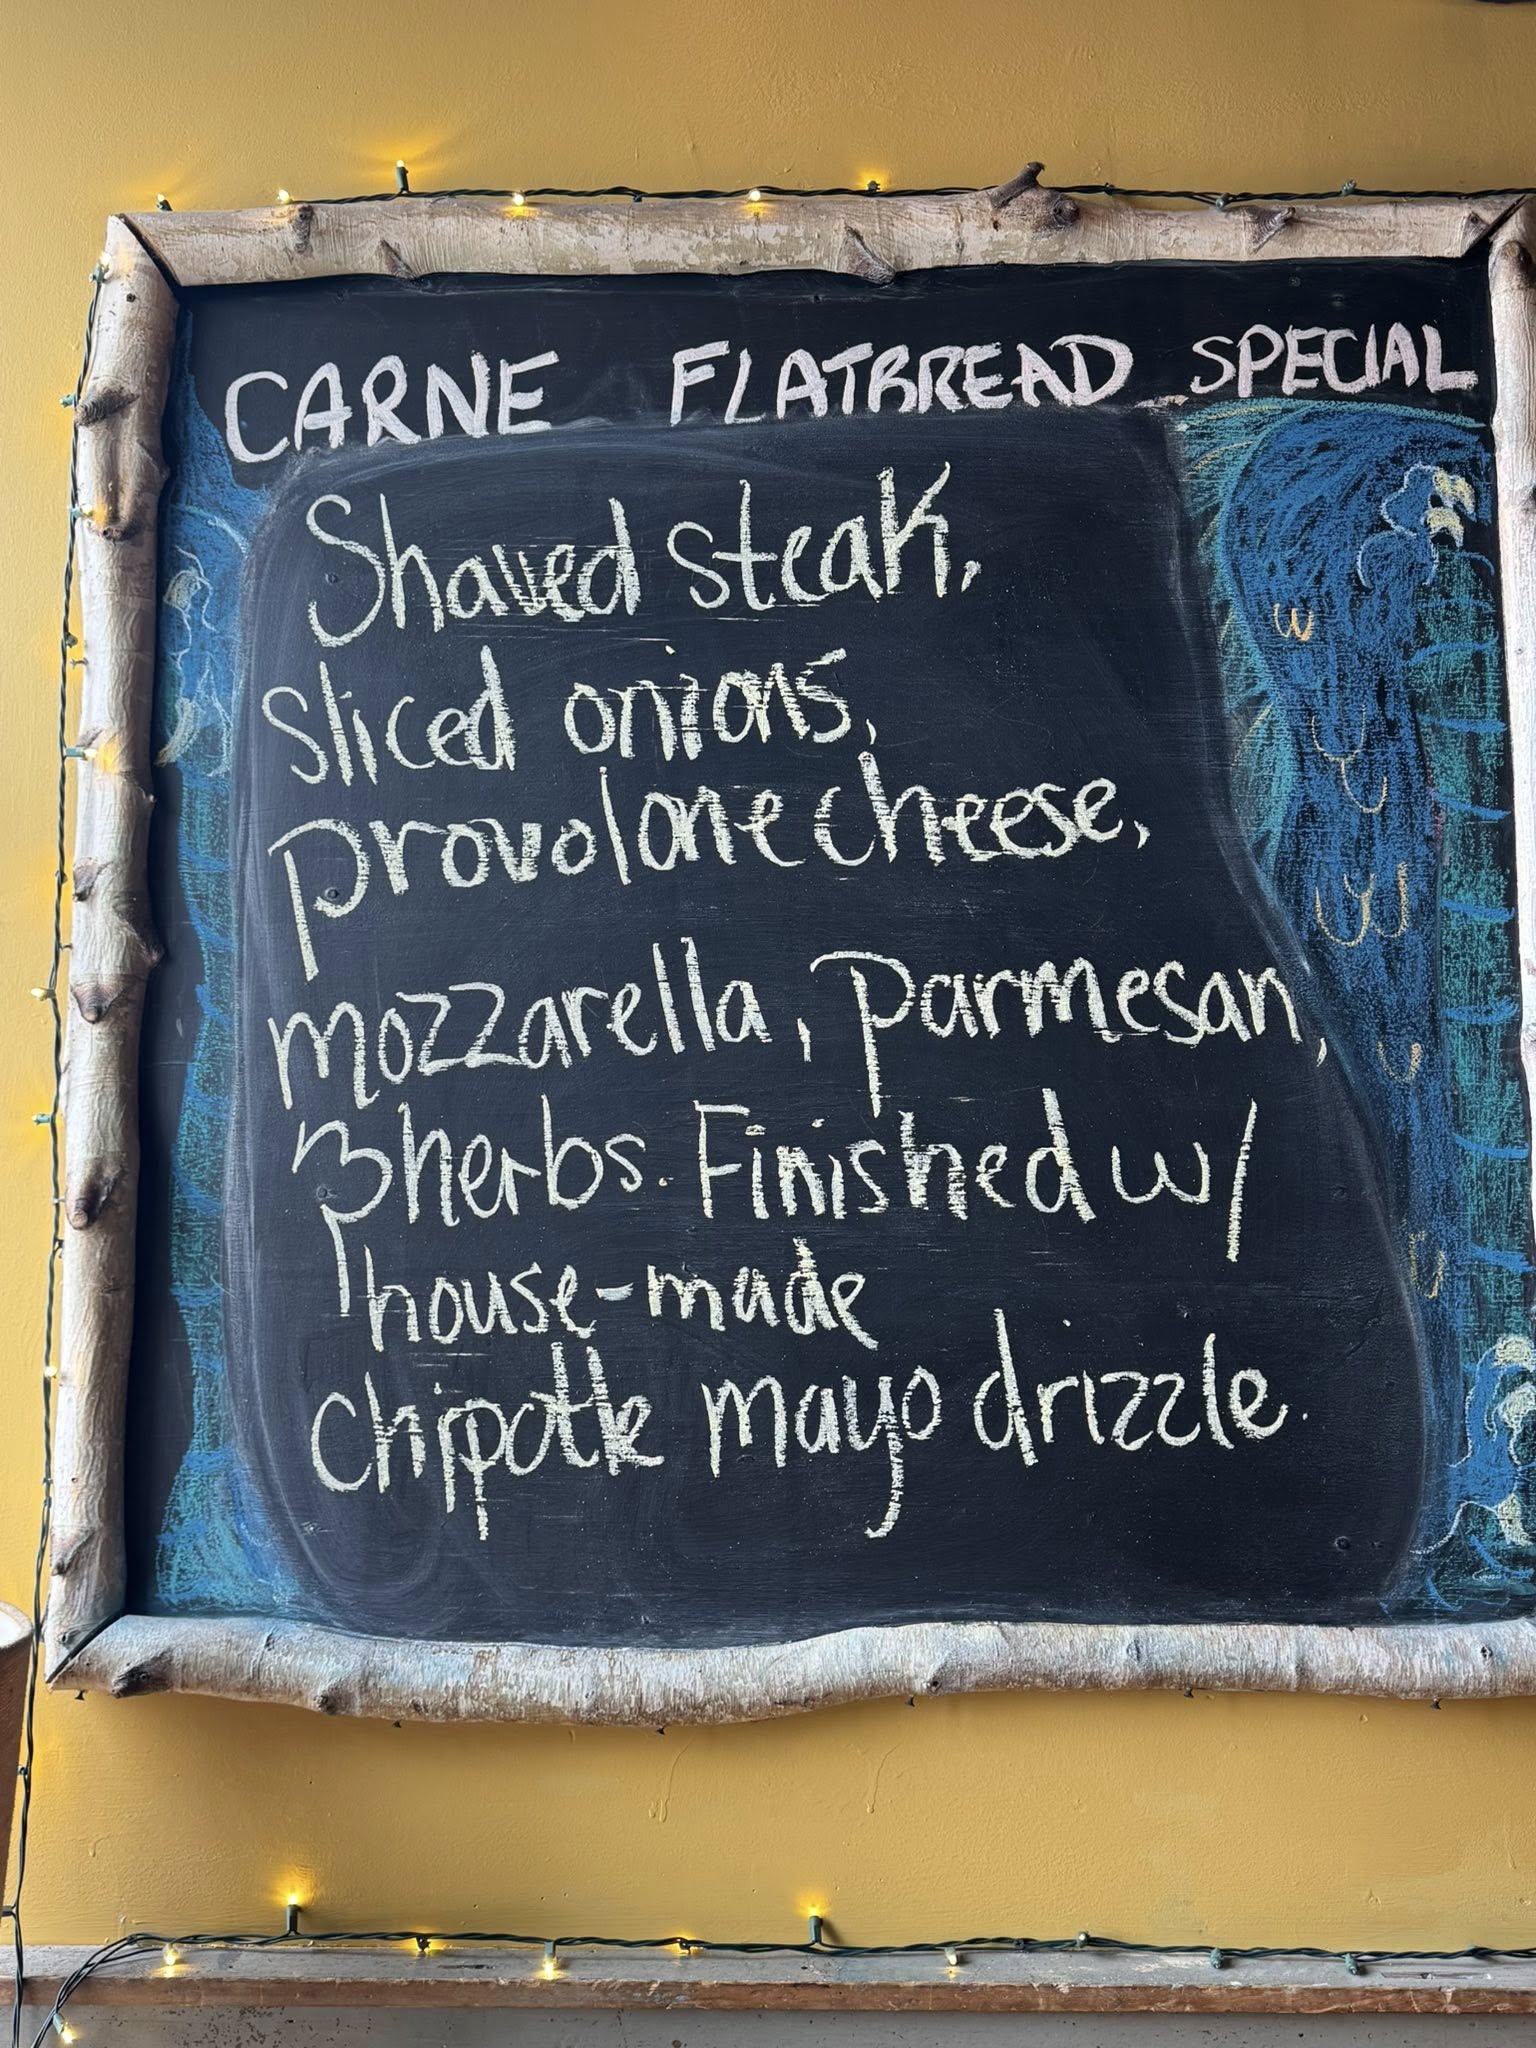 CARNE FLATBREAD SPECIAL
Shaved steak,
sliced onions,
provolone cheese,
mozzarella, parmesan,
herbs. Finished w/
house-made
chipotle mayo drizzle.